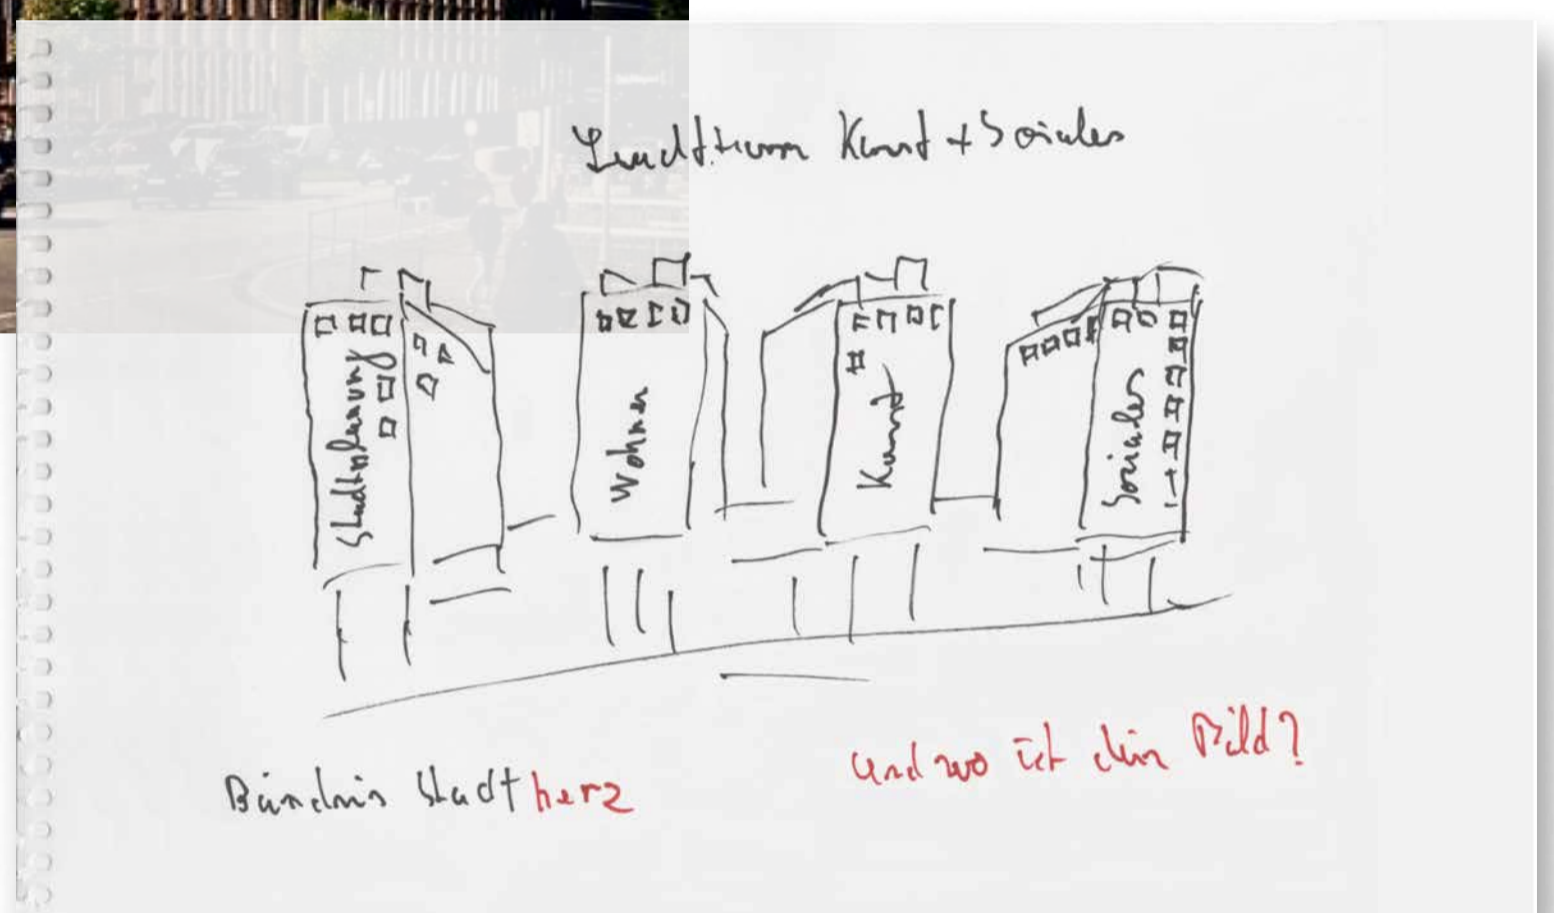 Leuchtturm Kunst + Soziales
Stadtplanung
Wohnen
Kunst
Soziales
Bündnis Stadtherz
Und wo ist dein Bild?